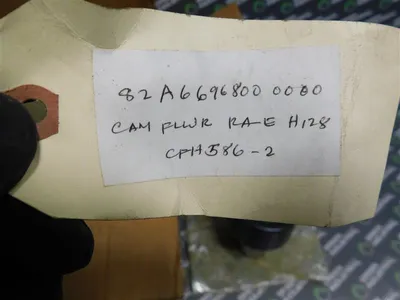 82A66968000000
CAM FLWR RA-E H128
CFH586-2